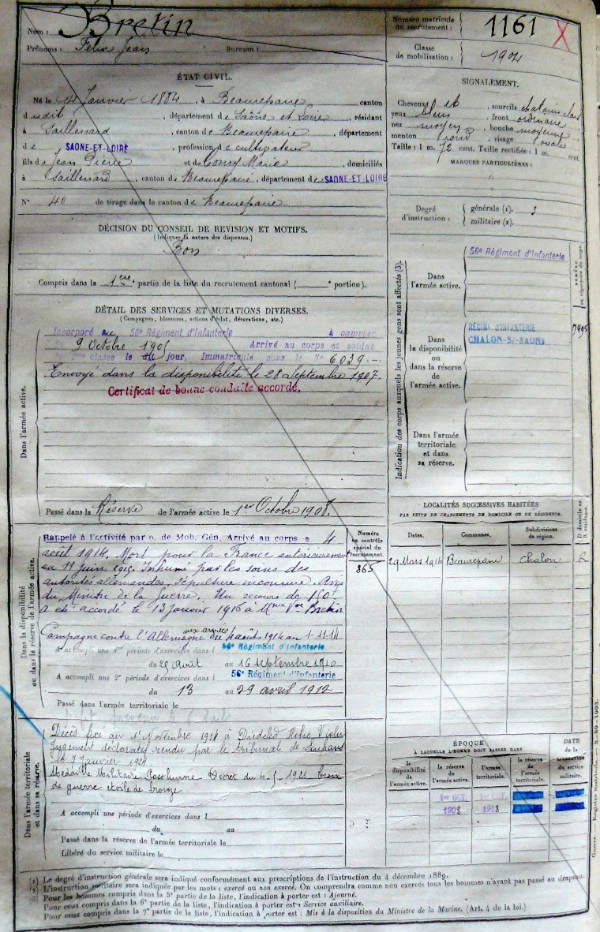 Nom : Bretin
Prénoms : Félix Jean Surnom :
Numéro matricule du recrutement : 1161
Classe de mobilisation : 1904
ÉTAT CIVIL.
Né le Janvier 1884, à Beaurepaire, canton
dudit, département de Saône et Loire, résidant
à Saillenard, canton de Beaurepaire, département
de SAONE-ET-LOIRE, profession de cultivateur
fils de Jean Pierre et de Marie, domiciliés
à Saillenard, canton de Beaurepaire, département de SAONE-ET-LOIRE
N° 40 de tirage dans le canton de Beaurepaire
SIGNALEMENT.
Cheveux et sourcils
yeux, front ordinaire
nez moyen, bouche moyenne
menton rond, visage ovale
Taille : 1 m. 72 cent. Taille rectifiée : 1 m.
MARQUES PARTICULIÈRES :
Degré d'instruction : générale (1). 3
militaire (2).
DÉCISION DU CONSEIL DE REVISION ET MOTIFS.
(Indiquer la nature des dispenses.)
Bon
Compris dans la 1ère partie de la liste du recrutement cantonal ( portion).
DÉTAIL DES SERVICES ET MUTATIONS DIVERSES.
(Campagnes, blessures, actions d'éclat, décorations, etc.)
Dans l'armée active.
Incorporé au 56e Régiment d'Infanterie à compter
9 Octobre 1905 Arrivé au corps et soldat
2e classe le dit jour. Immatriculé sous le N° 6039.-
Envoyé dans la disponibilité le 28 septembre 1907.
Certificat de bonne conduite accordé.
Passé dans la Réserve de l'armée active le 1er Octobre 1908.
Indication des corps auxquels les jeunes gens sont affectés (3).
Dans l'armée active.
56e Régiment d'Infanterie
Dans la disponibilité ou dans la réserve de l'armée active.
RÉGIMt D'INFANTERIE
CHALON-S-SAONE
Dans l'armée territoriale et dans sa réserve.
LOCALITÉS SUCCESSIVES HABITÉES
PAR SUITE DE CHANGEMENTS DE DOMICILE OU DE RÉSIDENCE.
Dates. Communes. Subdivisions de région. D. domicile ou R. résidence.
29 Mars 1914 Beaurepaire Chalon R
Dans la disponibilité ou dans la réserve de l'armée active.
Numéro au contrôle spécial du recrutement.
865
Rappelé à l'activité par o. de Mob. Gén. Arrivé au corps le 4
août 1914. Mort pour la France antérieurement
au 11 juin 1915. Inhumé par les soins des
autorités allemandes. Sépulture inconnue. Avis
du Ministre de la Guerre. Un secours de 150f
a été accordé le 13 Janvier 1916 à Mme Vve Bretin
Campagne contre l'Allemagne aux armées du 4 août 1914 au 1-11-14
A accompli une 1e période d'exercices dans l 56e Régiment d'Infanterie
du 25 août au 16 septembre 1910
A accompli une 2e période d'exercices dans l 56e Régiment d'Infanterie
du 13 au 29 avril 1912
Passé dans l'armée territoriale le
Dans l'armée territoriale et dans sa réserve.
Décès fixé au 1er Novembre 1914 à
Jugement déclaratif rendu par le tribunal de Louhans
le Janvier 1921
Médaille Militaire Posthume Décret du 1921 Croix
de guerre étoile de bronze
A accompli une période d'exercices dans l
du au
Passé dans la réserve de l'armée territoriale le
Libéré du service militaire le
ÉPOQUE
À LAQUELLE L'HOMME DOIT PASSER DANS
la disponibilité de l'armée active. la réserve de l'armée active. l'armée territoriale. la réserve de l'armée territoriale.
DATE de la libération du service militaire.
1er OCT
1908
(1) Le degré d'instruction générale sera indiqué conformément aux prescriptions de l'instruction du 4 décembre 1889.
(2) L'instruction militaire sera indiquée par les mots : exercé ou non exercé. On comprendra comme non exercés tous les hommes n'ayant pas passé au drapeau.
(3) Pour les hommes compris dans la 5e partie de la liste, l'indication à porter est : Ajourné.
Pour ceux compris dans la 6e partie de la liste, l'indication à porter est : Service auxiliaire.
Pour ceux compris dans la 7e partie de la liste, l'indication à porter est : Mis à la disposition du Ministre de la Marine. (Art. 4 de la loi.)